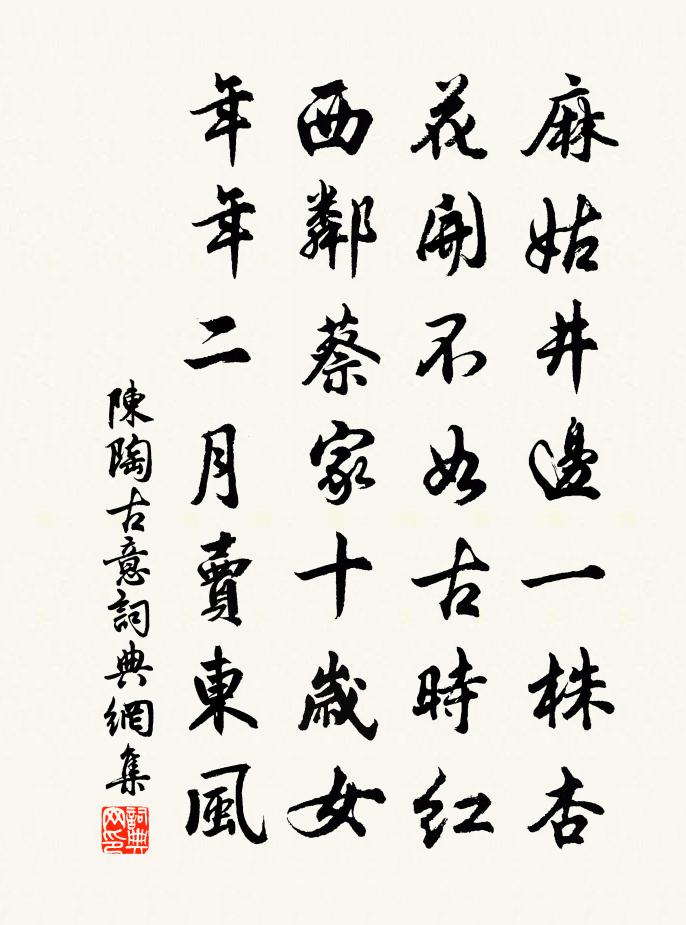 麻姑井邊一株杏
花開不如古時紅
西鄰蔡家十歲女
年年二月賣東風
陳陶古意詞典網集
詞典網印